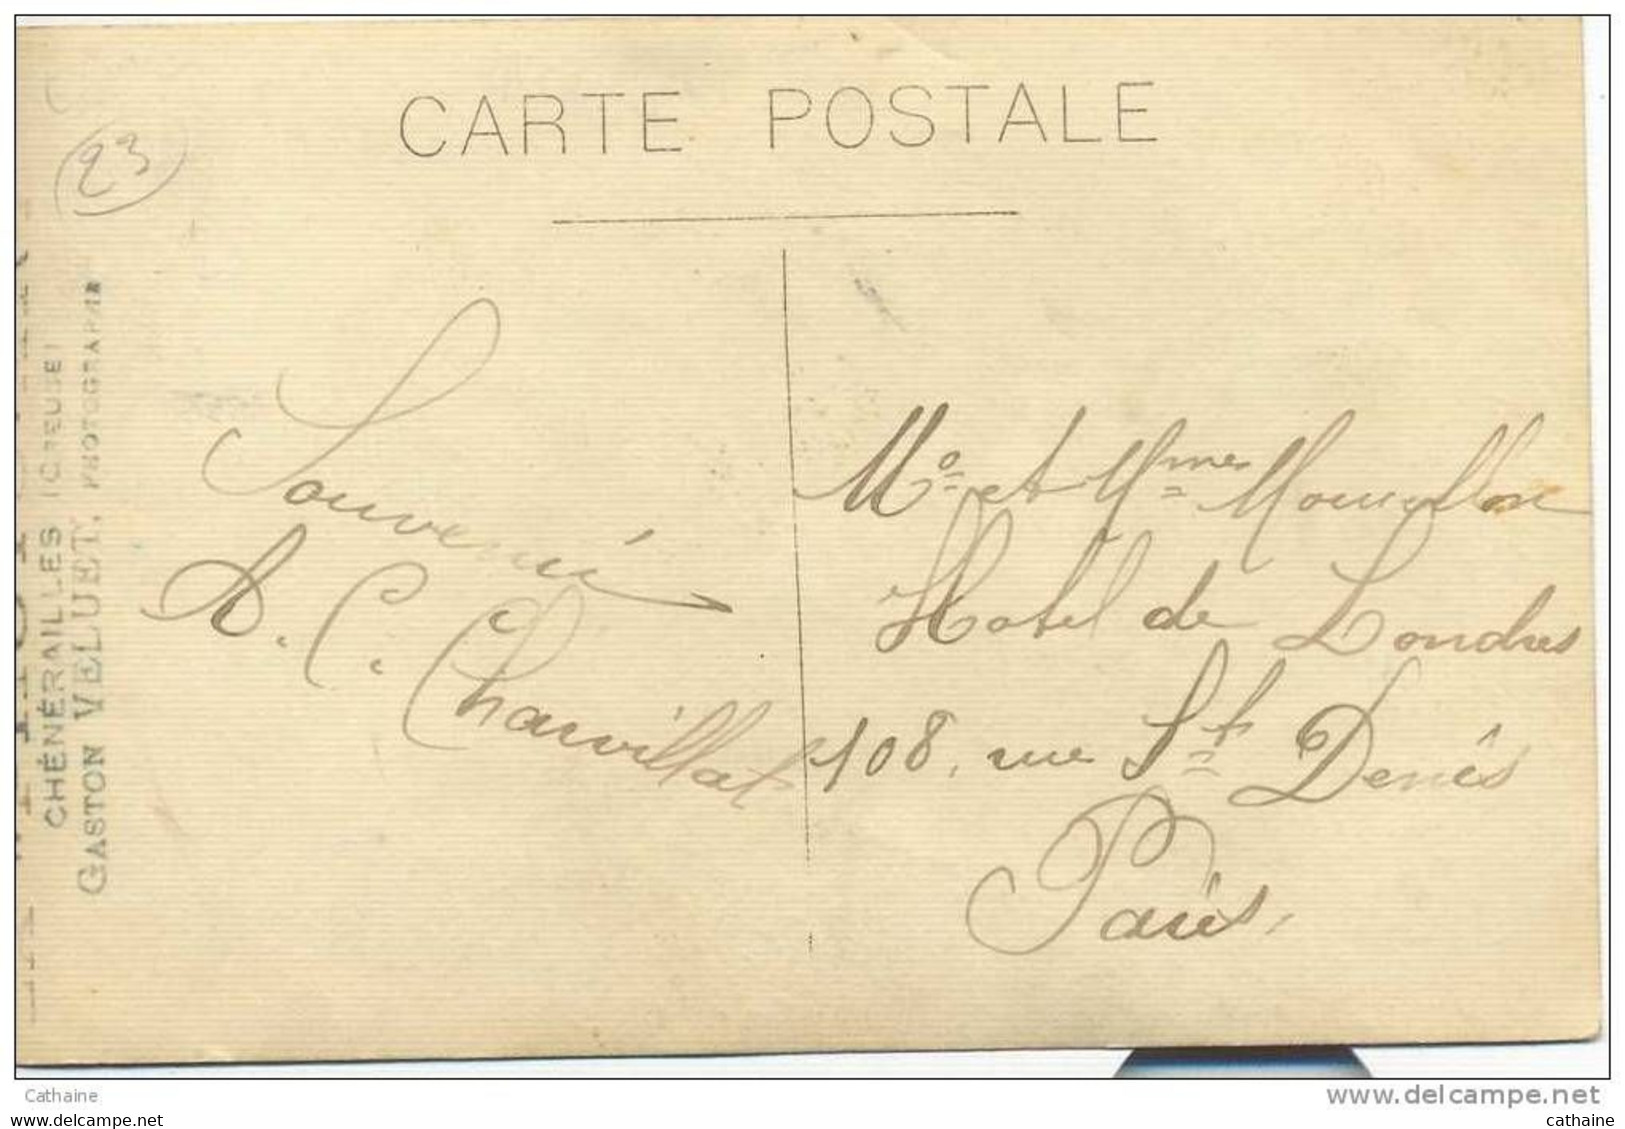 CARTE POSTALE
23
CHÉNÉRAILLES (CREUSE)
GASTON VELUET, PHOTOGRAPHE
Souvenir
A. C. Charvillat
Mr et Mmes
Hotel de Londres
108, rue St Denis
Paris,
Cathaine
delcampe.net
cathaine
cathaine